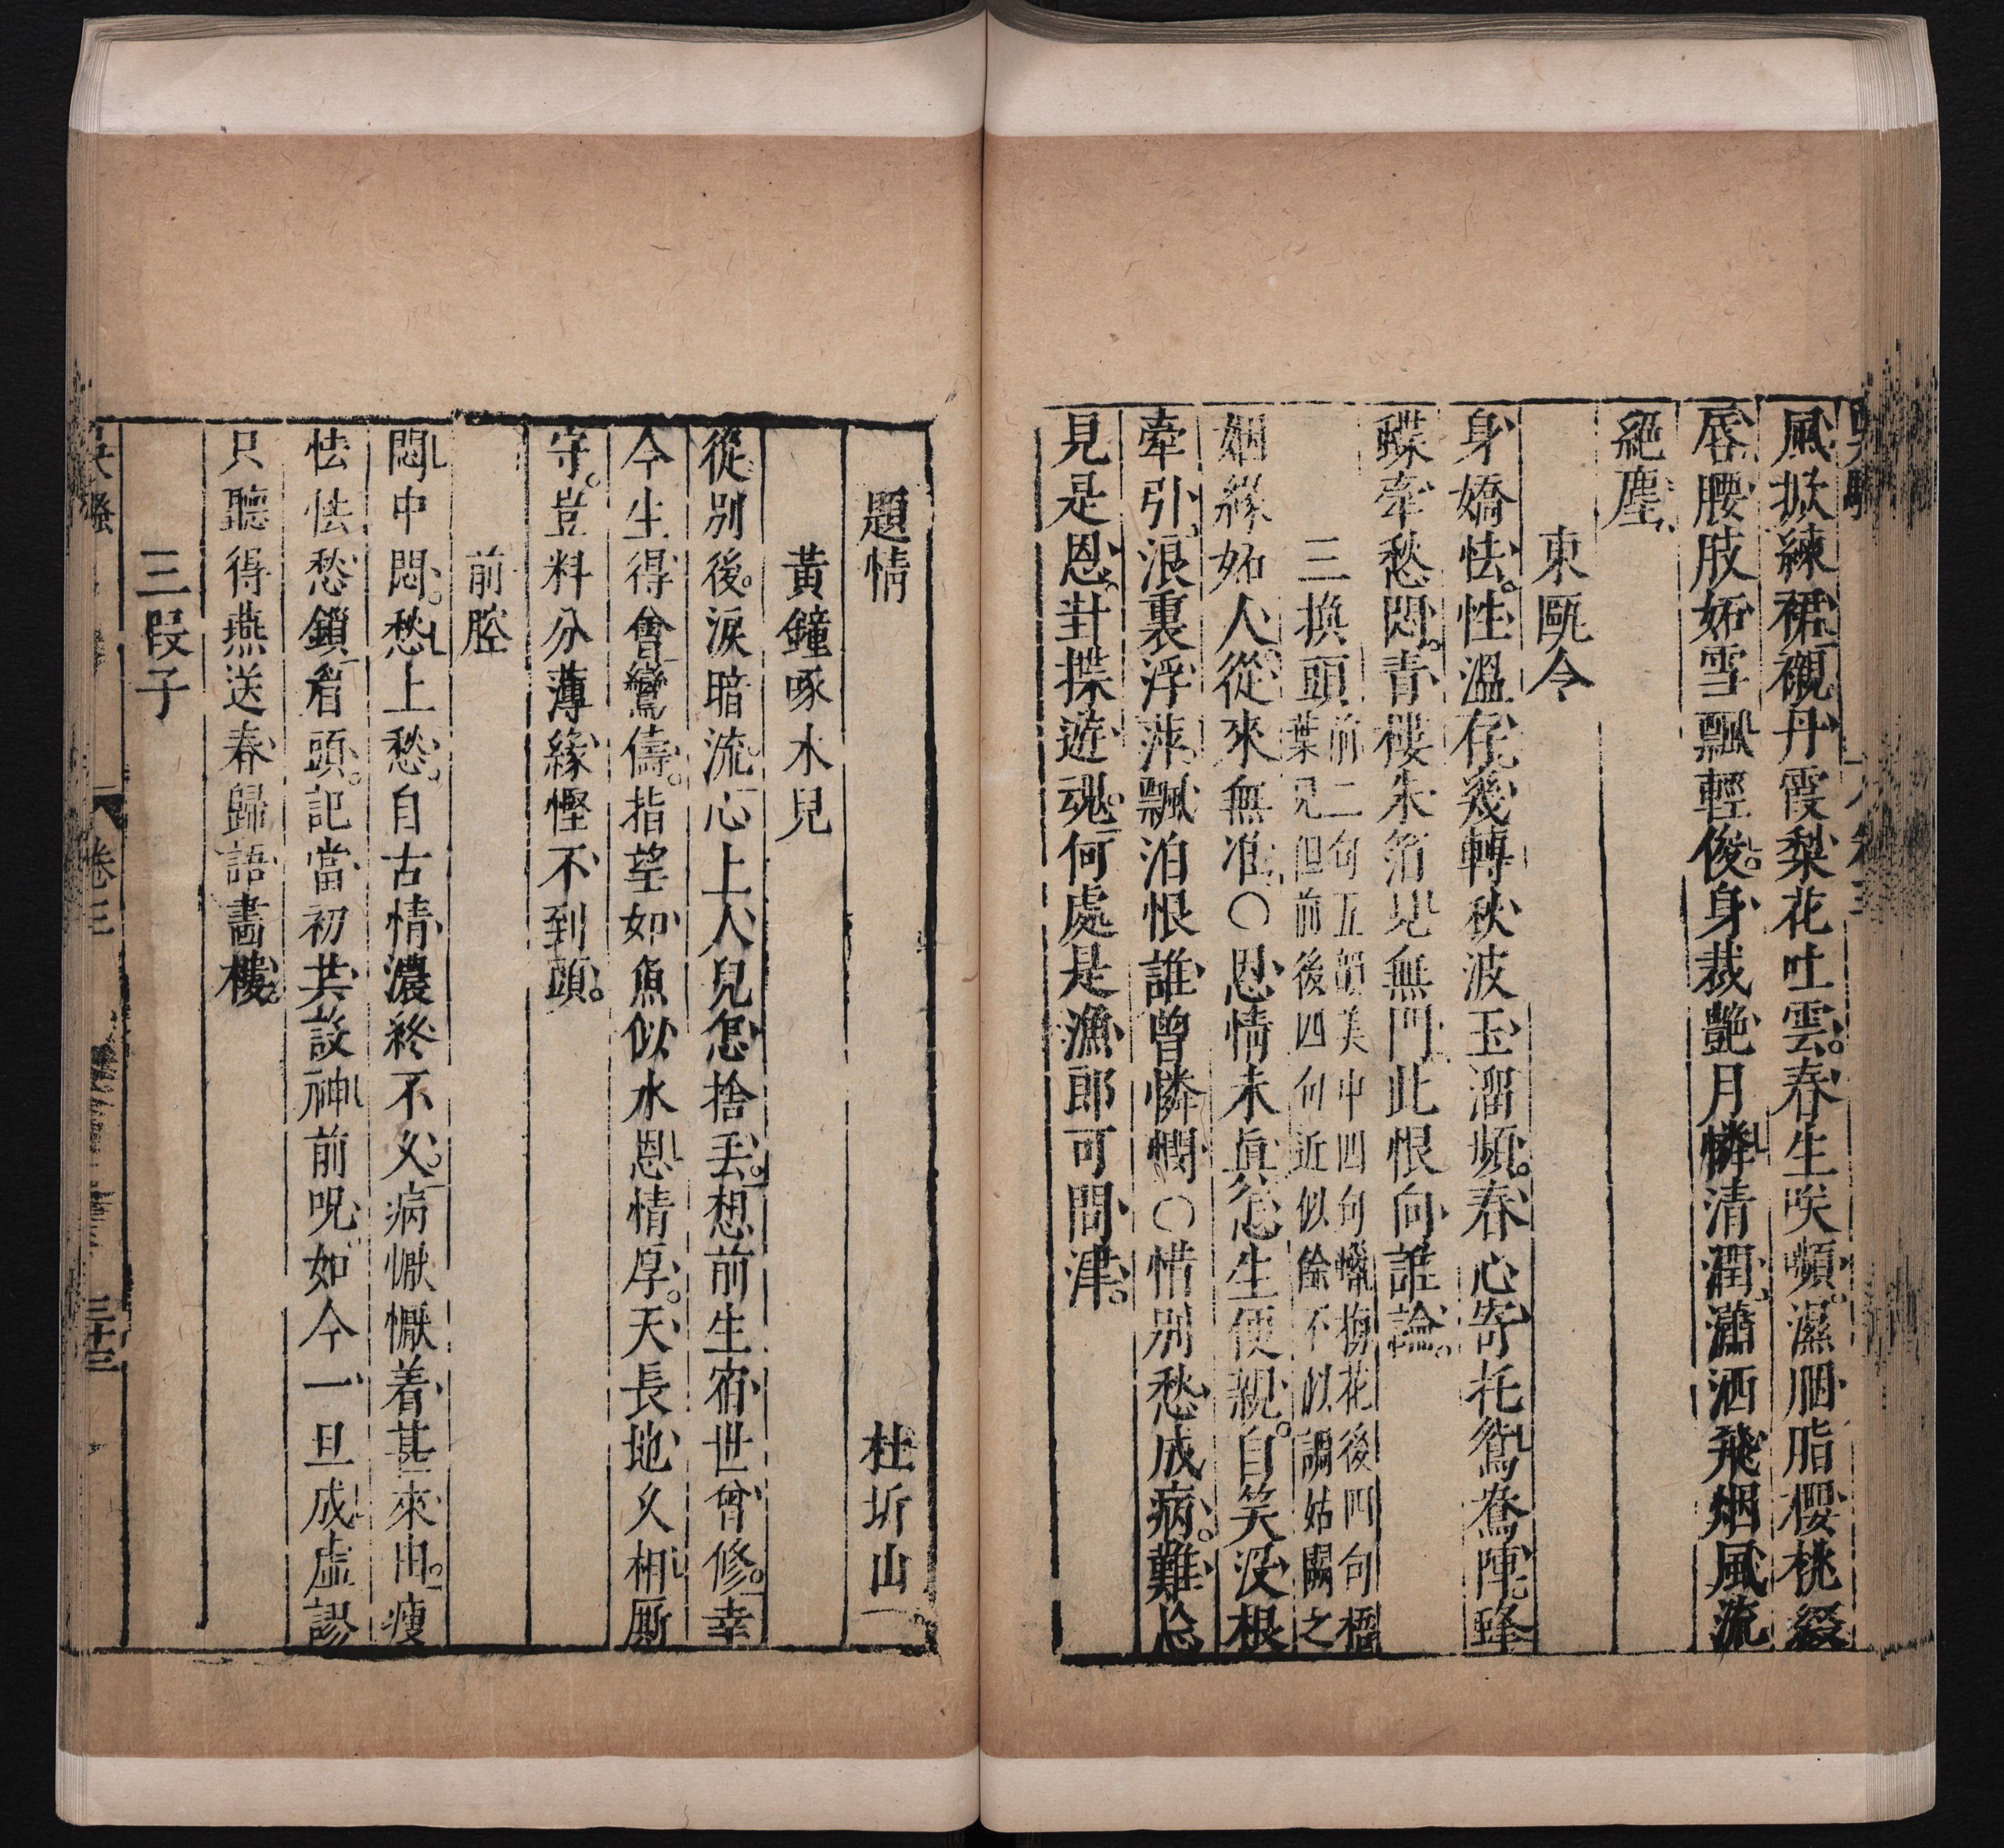 風掀練裙襯丹霞梨花吐雲春生咲頻濕胭脂櫻桃綴
唇腰肢妬雪飄輕俊身裁艷月憐清潤瀟洒飛烟風流
絕塵
東甌令
身嬌怯性溫存幾轉秋波玉溜頻春心寄托鴛鴦陣蜂
蝶牽愁悶青樓朱箔見無門此恨向誰論
三換頭前二句五韻美中四句蠟梅花後四句梧
葉兒但前後四句近似餘不似調姑闕之
姻緣妬人從來無准〇恩情未眞怎生便親自笑沒根
牽引浪裏浮萍飄泊恨誰曾憐憫〇惜別愁成病難忘
見是恩對揲遊魂何處是漁郎可問津
題情 杜圻山
黃鐘啄木兒
從別後淚暗流心上人兒怎捨丟想前生宿世曾修幸
今生得會鸞儔指望如魚似水恩情厚天長地久相厮
守豈料分薄緣慳不到頭
前腔
悶中悶愁上愁自古情濃終不久病懨懨着甚來由瘦
怯怯愁鎖眉頭記當初共設神前呪如今一旦成虛謬
只聽得燕送春歸語畵樓
三段子
卷三
三十三